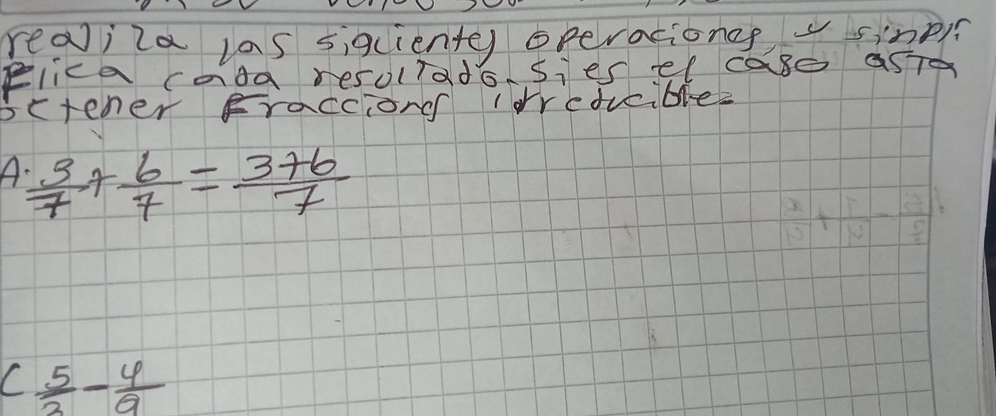 realiza las siguientes operaciones y simpli
Flica cada resultado. si es el caso asta
octener Fracciones irreducible
A. 3/7 + 6/7 = 3+6/7
C 5/3 - 4/9